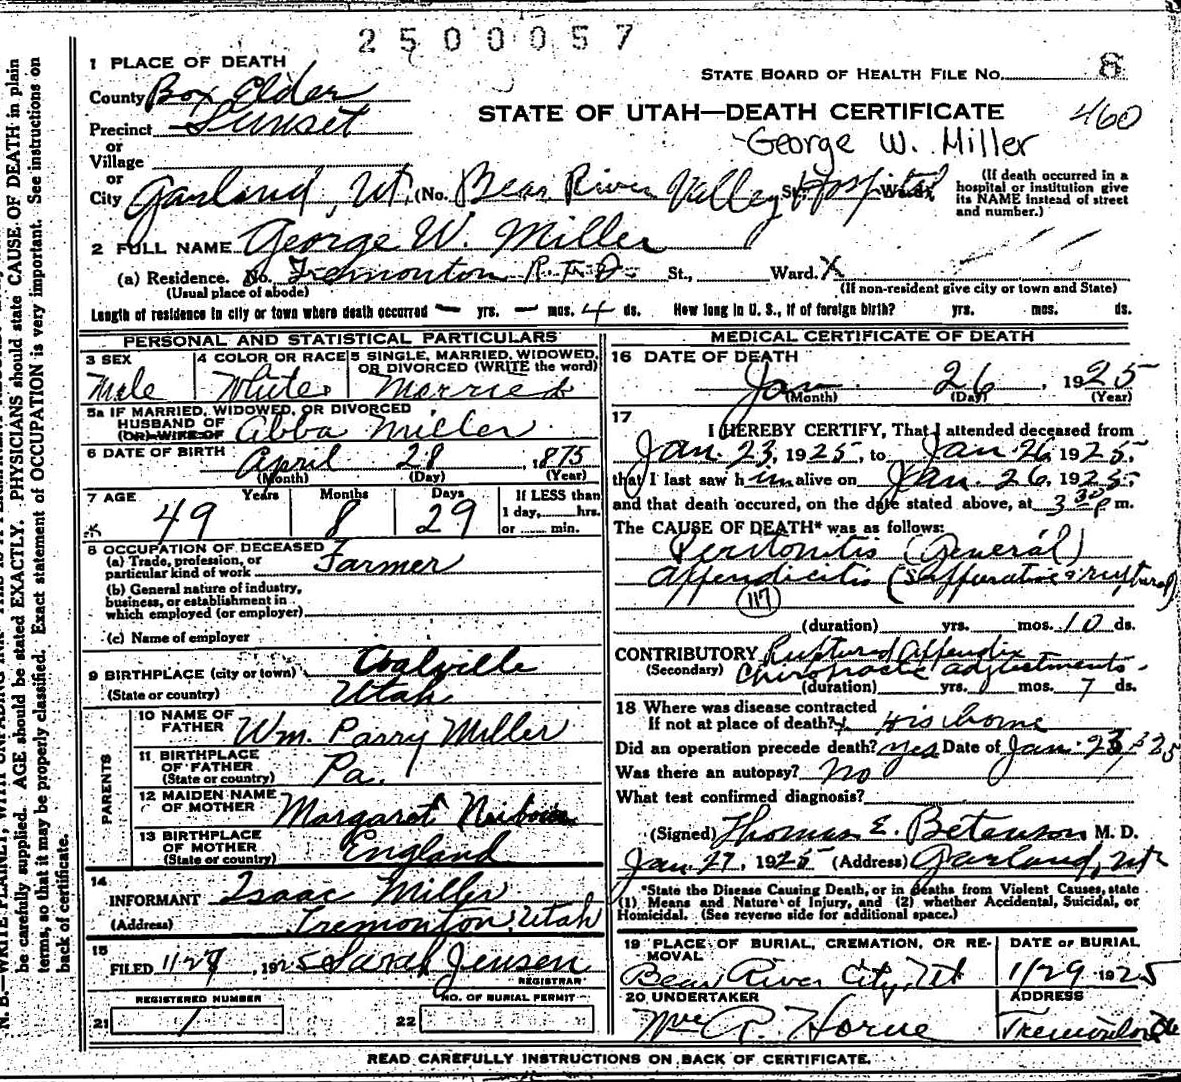 2500057
1 PLACE OF DEATH
STATE BOARD OF HEALTH FILE NO. 8
County Box Elder
STATE OF UTAH—DEATH CERTIFICATE 460
Precinct Sunset
George W. Miller
or
Village
or
City Garland, Ut. (No. Bear River Valley Hospital St., Ward)
(If death occurred in a hospital or institution give its NAME instead of street and number.)
2 FULL NAME George W. Miller
(a) Residence. No. Tremonton R.F.D. St., Ward. X
(Usual place of abode)
(If non-resident give city or town and State)
Length of residence in city or town where death occurred — yrs. — mos. 4 ds. How long in U. S., if of foreign birth? yrs. mos. ds.
PERSONAL AND STATISTICAL PARTICULARS
3 SEX Male
4 COLOR OR RACE White
5 SINGLE, MARRIED, WIDOWED, OR DIVORCED (WRITE the word) Married
5a IF MARRIED, WIDOWED, OR DIVORCED
HUSBAND OF
(OR) WIFE OF Abba Miller
6 DATE OF BIRTH April 28, 1875
(Month) (Day) (Year)
7 AGE Years Months Days If LESS than
49 8 29 1 day, hrs.
or min.
8 OCCUPATION OF DECEASED
(a) Trade, profession, or
particular kind of work Farmer
(b) General nature of industry,
business, or establishment in
which employed (or employer)
(c) Name of employer
9 BIRTHPLACE (city or town) Coalville
(State or country) Utah
PARENTS
10 NAME OF FATHER Wm. Parry Miller
11 BIRTHPLACE OF FATHER
(State or country) Pa.
12 MAIDEN NAME OF MOTHER Margaret
13 BIRTHPLACE OF MOTHER
(State or country) England
14
INFORMANT Isaac Miller
(Address) Tremonton, Utah
15
FILED 1/27, 1925 Sarah Jensen
REGISTRAR
REGISTERED NUMBER
NO. OF BURIAL PERMIT
21 1
22
MEDICAL CERTIFICATE OF DEATH
16 DATE OF DEATH
Jan 26, 1925
(Month) (Day) (Year)
17
I HEREBY CERTIFY, That I attended deceased from
Jan. 23, 1925, to Jan 26, 1925.
that I last saw him alive on Jan. 26, 1925.
and that death occured, on the date stated above, at 3 30 p m.
The CAUSE OF DEATH* was as follows:
Peritonitis (General)
Appendicitis (Suppurative & ruptured)
117
(duration) yrs. mos. 10 ds.
CONTRIBUTORY Ruptured Appendix
(Secondary) Chiropractic adjustments.
(duration) yrs. mos. 7 ds.
18 Where was disease contracted
If not at place of death? His home
Did an operation precede death? Yes Date of Jan. 23, 1925
Was there an autopsy? No
What test confirmed diagnosis?
(Signed) Thomas E. Betenson M. D.
Jan. 27, 1925 (Address) Garland, Ut
*State the Disease Causing Death, or in deaths from Violent Causes, state
(1) Means and Nature of Injury, and (2) whether Accidental, Suicidal, or
Homicidal. (See reverse side for additional space.)
19 PLACE OF BURIAL, CREMATION, OR REMOVAL
Bear River City, Ut
DATE OF BURIAL
1/29 1925
20 UNDERTAKER
Mrs A. Horne
ADDRESS
Tremonton
READ CAREFULLY INSTRUCTIONS ON BACK OF CERTIFICATE.
be carefully supplied. AGE should be stated EXACTLY. PHYSICIANS should state CAUSE OF DEATH in plain
terms, so that it may be properly classified. Exact statement of OCCUPATION is very important. See instructions on
back of certificate.